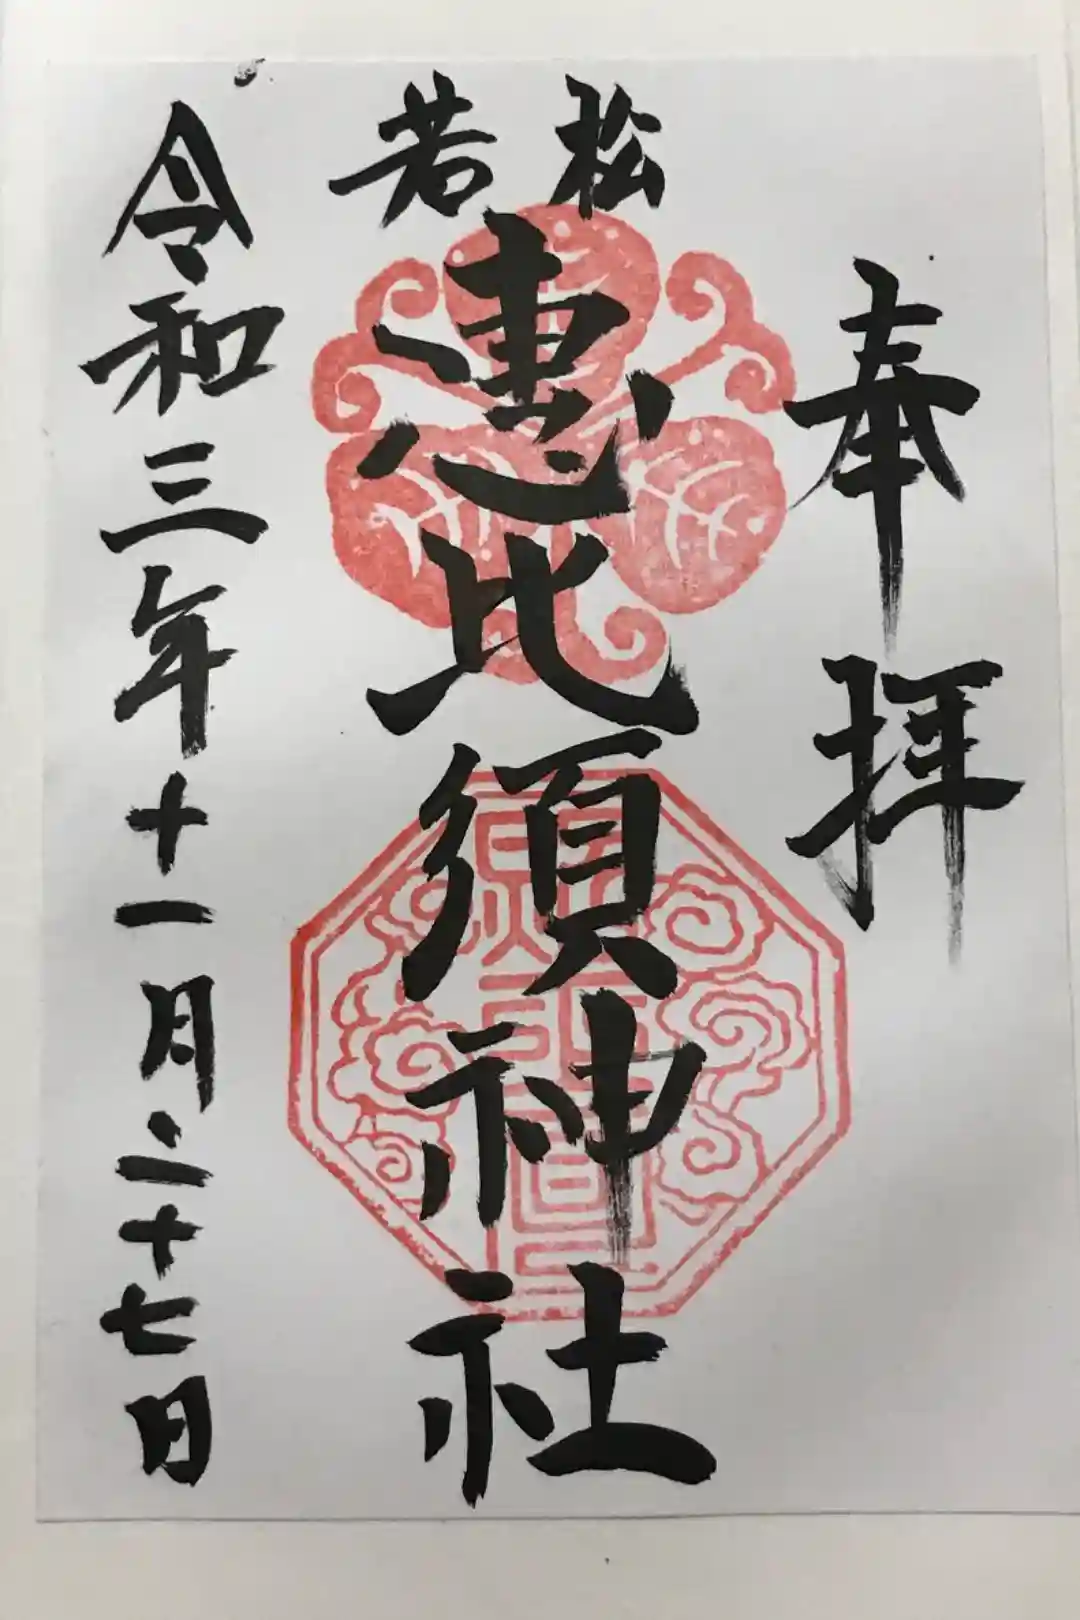 奉拝
若松
恵比須神社
令和三年十一月二十七日